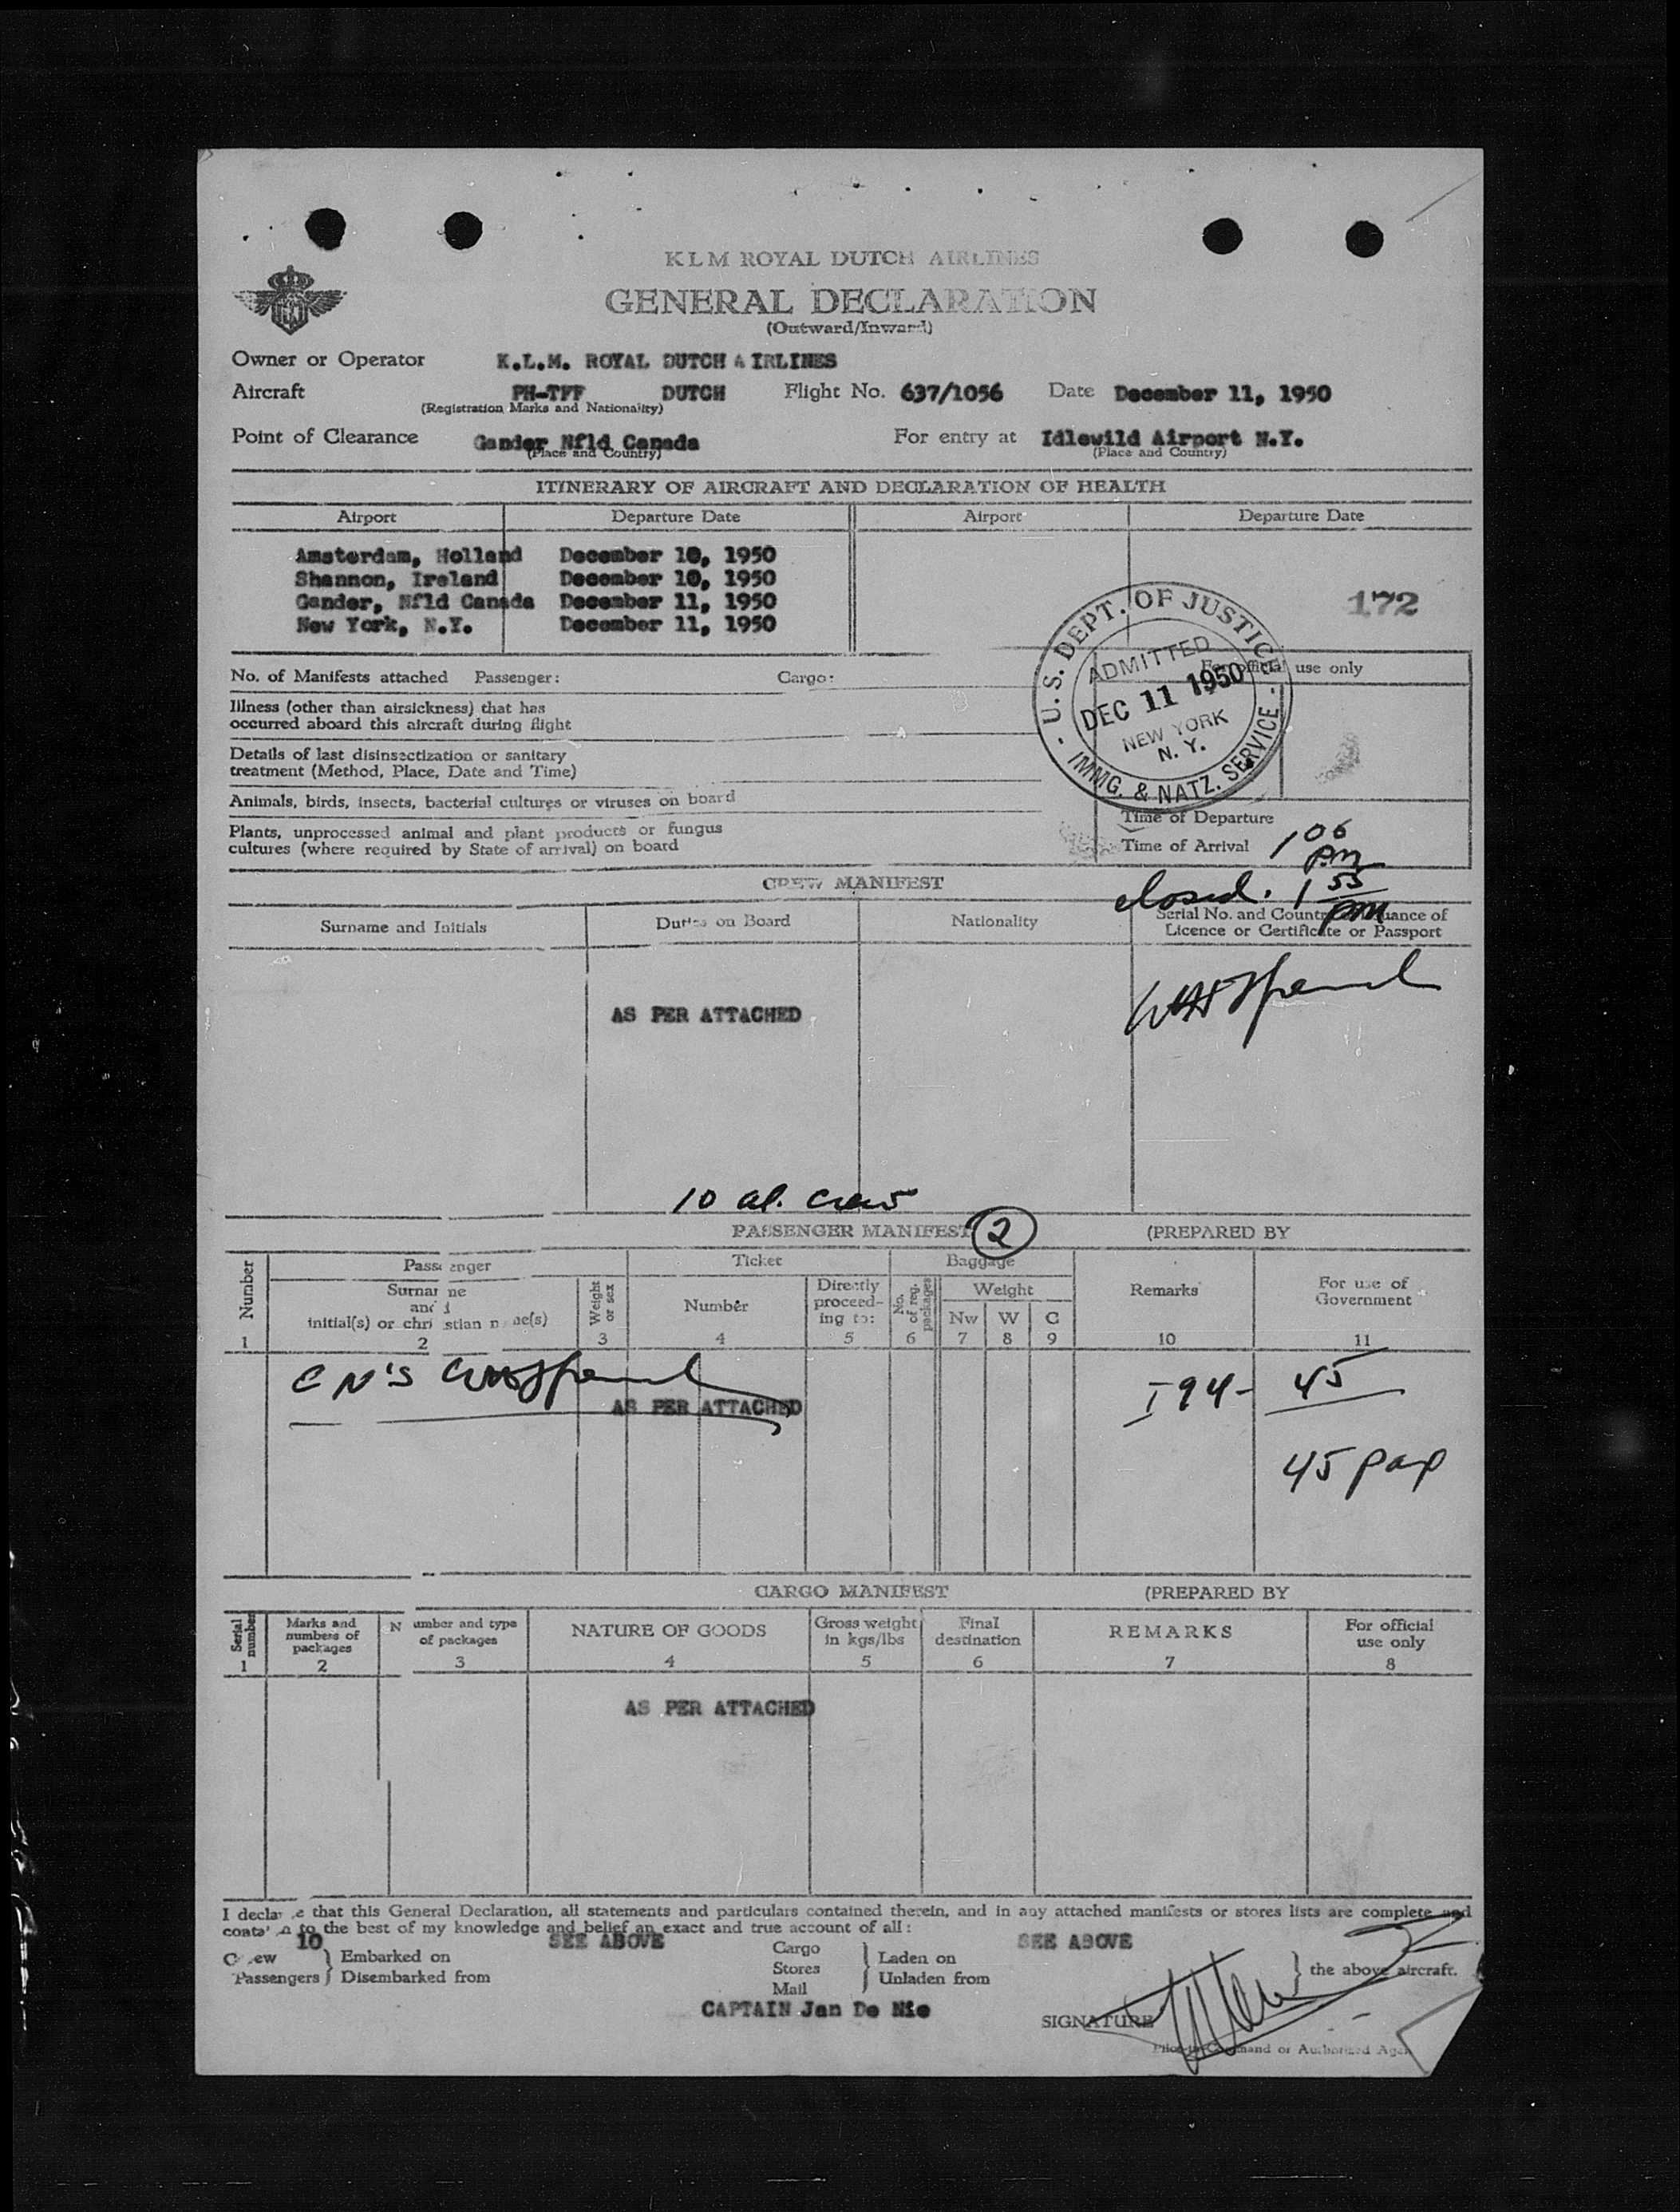 KLM ROYAL DUTCH AIRLINES
GENERAL DECLARATION
(Outward/Inward)
Owner or Operator K.L.M. ROYAL DUTCH AIRLINES
Aircraft PH-TFF DUTCH Flight No. 637/1056 Date December 11, 1950
(Registration Marks and Nationality)
Point of Clearance Gander Nfld Canada For entry at Idlewild Airport N.Y.
(Place and Country) (Place and Country)
ITINERARY OF AIRCRAFT AND DECLARATION OF HEALTH
Airport Departure Date Airport Departure Date
Amsterdam, Holland December 10, 1950
Shannon, Ireland December 10, 1950
Gander, Nfld Canada December 11, 1950
New York, N.Y. December 11, 1950
172
U.S. DEPT. OF JUSTICE
ADMITTED
DEC 11 1950
NEW YORK
N. Y.
IMMG. & NATZ. SERVICE
For official use only
No. of Manifests attached Passenger: Cargo:
Illness (other than airsickness) that has
occurred aboard this aircraft during flight
Details of last disinsectization or sanitary
treatment (Method, Place, Date and Time)
Animals, birds, insects, bacterial cultures or viruses on board
Plants, unprocessed animal and plant products or fungus
cultures (where required by State of arrival) on board
Time of Departure
Time of Arrival 1 06 PM
closed. 1 55 PM
CREW MANIFEST
Surname and Initials Duties on Board Nationality Serial No. and Country of Issuance of
Licence or Certificate or Passport
AS PER ATTACHED
10 al. crew
PASSENGER MANIFEST 2 (PREPARED BY
Number Passenger Ticket Baggage Remarks For use of
Government
Surname
and
initial(s) or christian name(s)
Weight or sex Number Directly
proceed-
ing to:
No. of reg. packages Weight
Nw W C
1 2 3 4 5 6 7 8 9 10 11
C N'S
AS PER ATTACHED
I 94- 45
45 pap
CARGO MANIFEST (PREPARED BY
Serial number Marks and
numbers of
packages
Number and type
of packages
NATURE OF GOODS Gross weight
in kgs/lbs
Final
destination
REMARKS For official
use only
1 2 3 4 5 6 7 8
AS PER ATTACHED
I declare that this General Declaration, all statements and particulars contained therein, and in any attached manifests or stores lists are complete and
contain to the best of my knowledge and belief an exact and true account of all:
10 SEE ABOVE SEE ABOVE
Crew Embarked on Cargo Laden on
Passengers Disembarked from Stores Unladen from the above aircraft.
Mail
CAPTAIN Jan De Nie
SIGNATURE
Pilot-in-Command or Authorized Agent